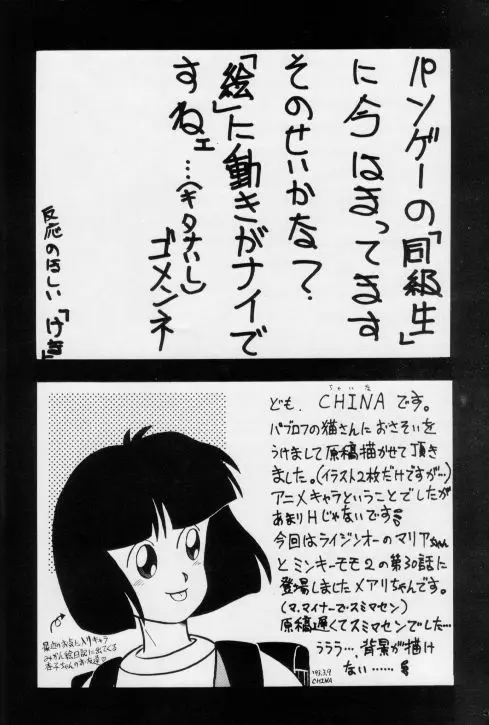 パソゲーの「同級生」
に今はまってます
そのせいかな?
「絵」に動きがナイで
すねェ…(キタナいし)
ゴメンネ
反応のほしい「げき」
ども、CHINAです。
ちゃいな
パブロフの猫さんにおさそいを
うけまして原稿描かせて頂き
ました。(イラスト2枚だけですが…)
アニメキャラということでしたが
あまりHじゃないです
今回はライジンオーのマリアちゃん
とミンキーモモ2の第30話に
登場しましたメアリちゃんです。
(マ、マイナーでスミマセン)
原稿遅くてスミマセンでした…
ううう…、背景が描け
ない……
最近のお気に入りキャラ
みかん絵日記に出てくる
杏子ちゃんのお友達♡
'93.3.9
CHINA